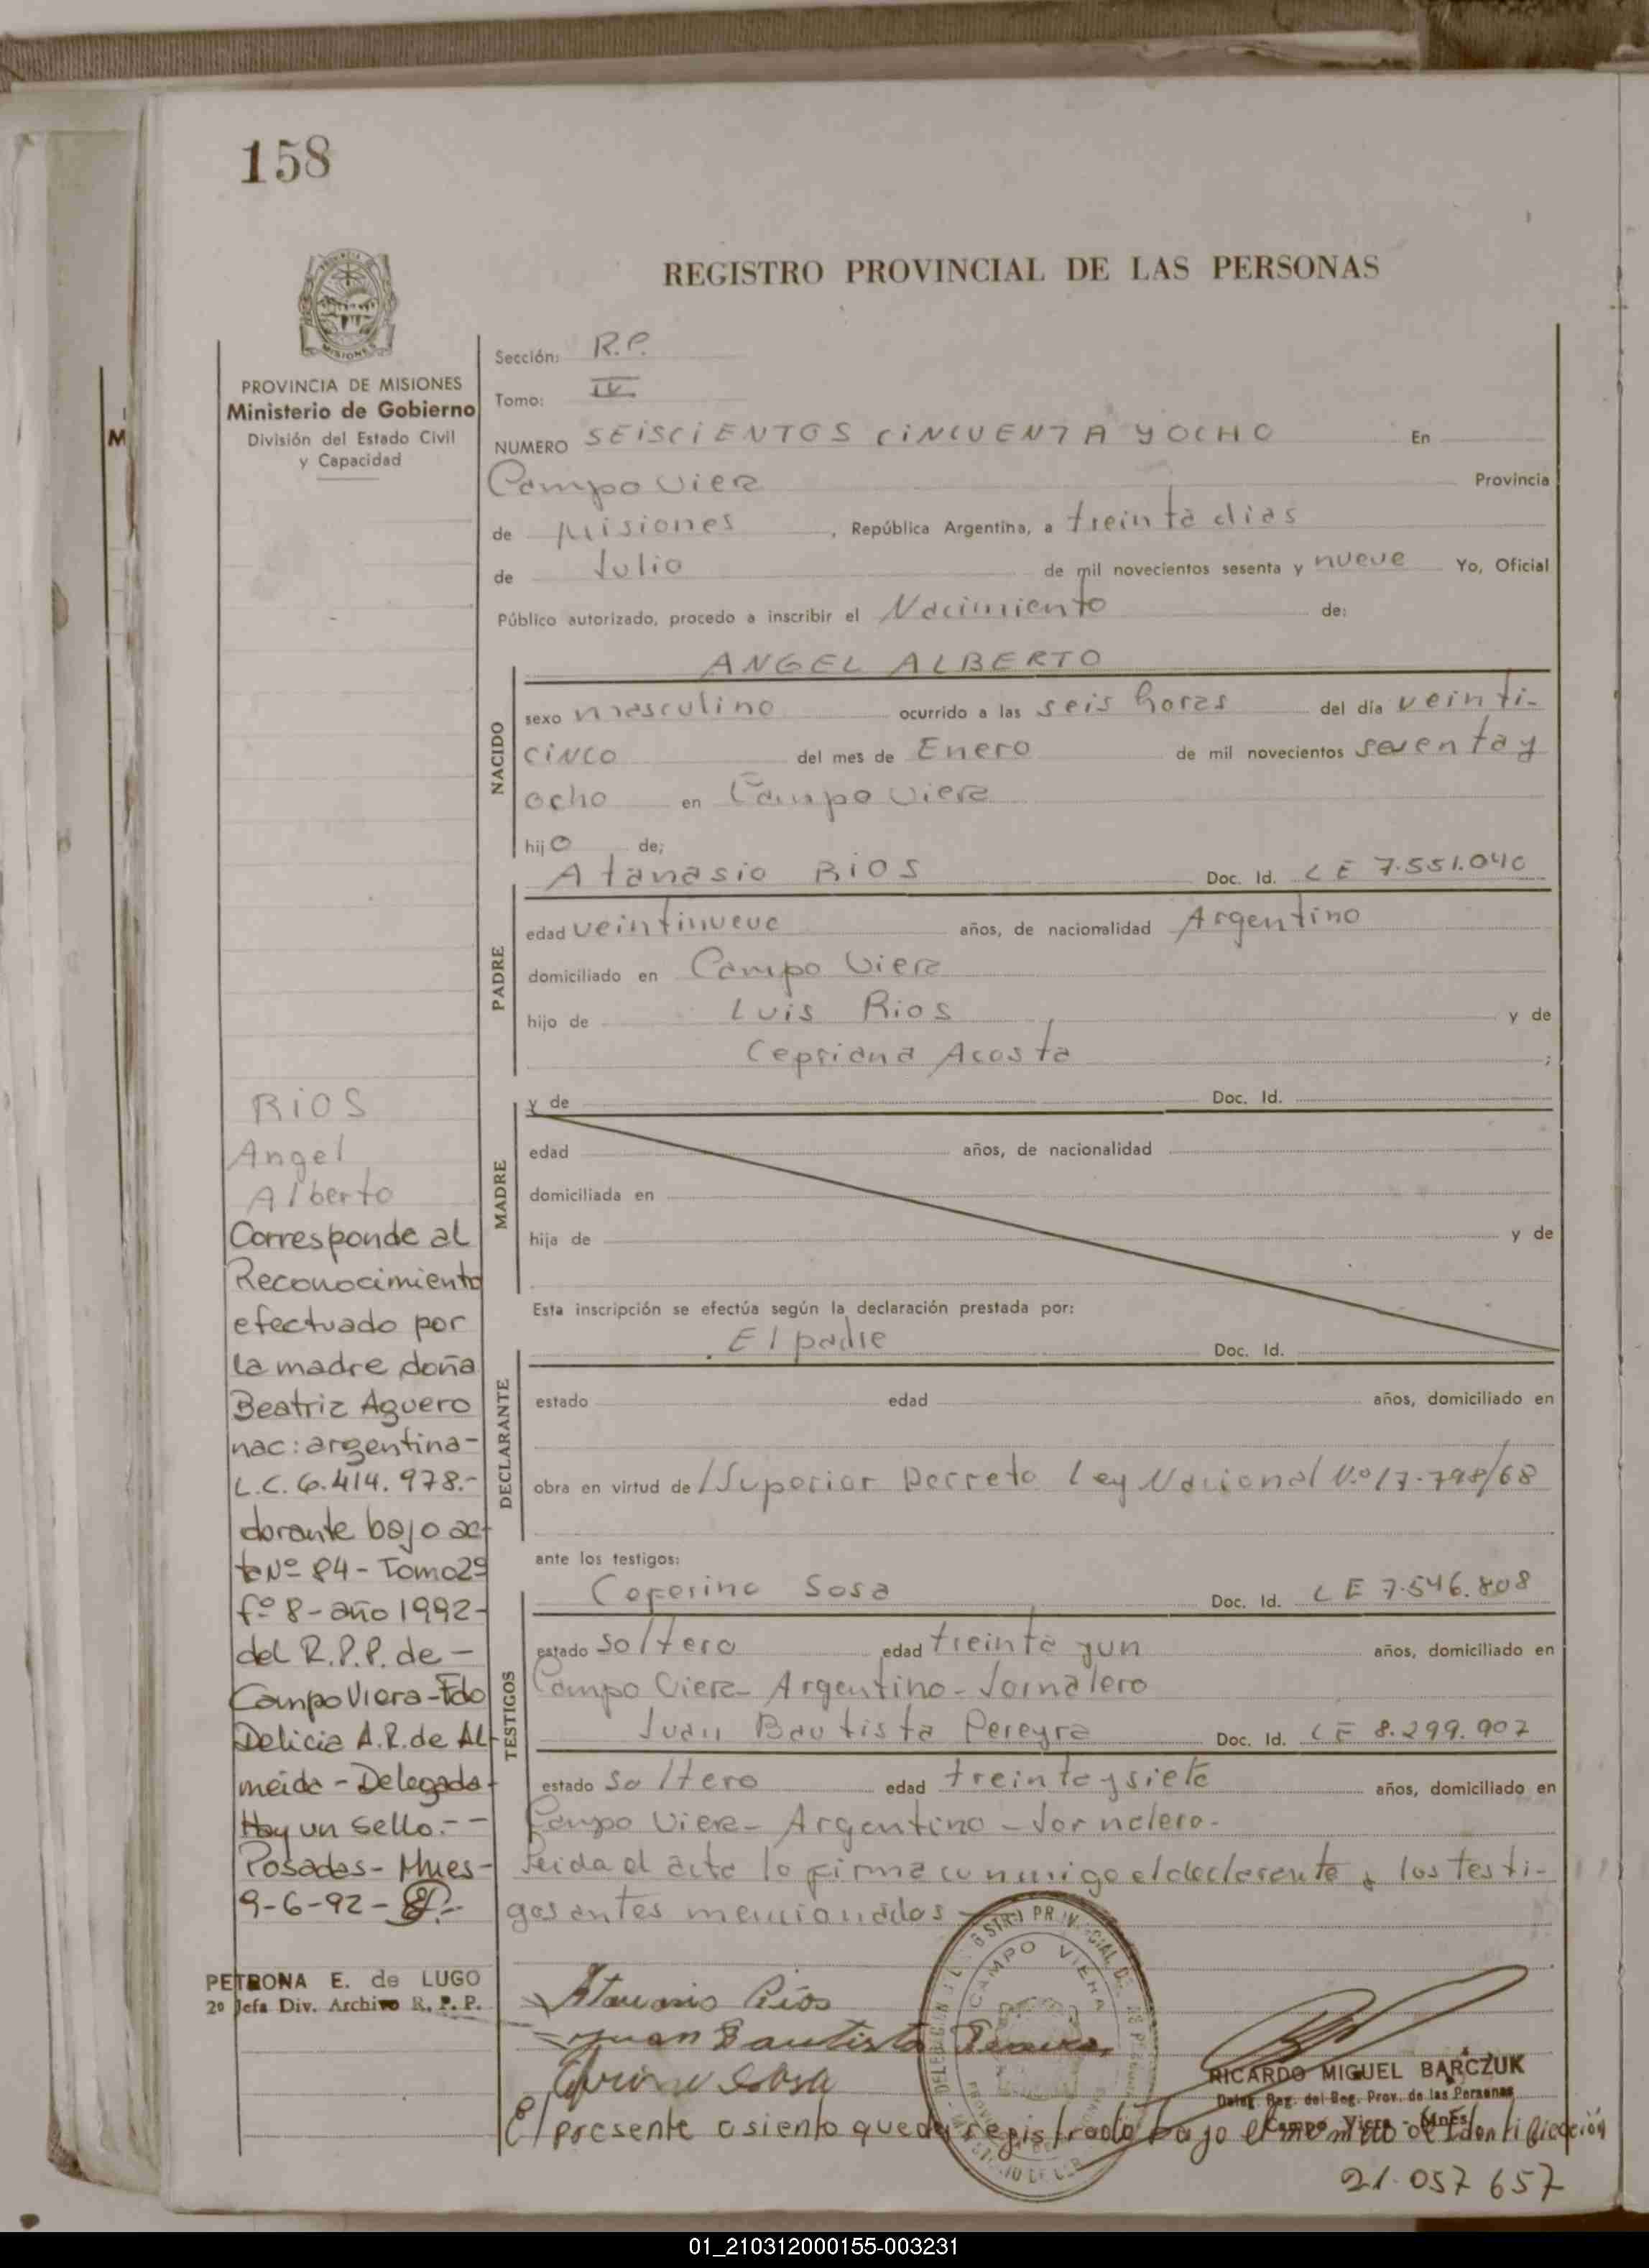 158
REGISTRO PROVINCIAL DE LAS PERSONAS
MISIONES
PROVINCIA DE MISIONES
Ministerio de Gobierno
División del Estado Civil
y Capacidad
M
Sección: R.P.
Tomo: IV
NUMERO SEISCIENTOS CINCUENTA Y OCHO En
Campo Viera Provincia
de Misiones, República Argentina, a treinta dias
de Julio de mil novecientos sesenta y nueve Yo, Oficial
Público autorizado, procedo a inscribir el Nacimiento de:
ANGEL ALBERTO
NACIDO
sexo masculino ocurrido a las seis horas del día veinti-
cinco del mes de Enero de mil novecientos sesenta y
ocho en Campo Viera
hijo de;
Atanasio Rios Doc. Id. L E 7.551.040
PADRE
edad veintinueve años, de nacionalidad Argentino
domiciliado en Campo Viera
hijo de Luis Rios y de
Cepriana Acosta ;
MADRE
y de Doc. Id.
edad años, de nacionalidad
domiciliada en
hija de y de
Esta inscripción se efectúa según la declaración prestada por:
El padre Doc. Id.
DECLARANTE
estado edad años, domiciliado en
obra en virtud de /Superior Decreto Ley Nacional N.º 17.798/68
ante los testigos:
Ceferino Sosa Doc. Id. L E 7.546.808
TESTIGOS
estado soltero edad treinta y un años, domiciliado en
Campo Viera - Argentino - Jornalero
Juan Bautista Pereyra Doc. Id. L E 8.299.907
estado soltero edad treinta y siete años, domiciliado en
Campo Viera - Argentino - Jornalero.
Leida el acta lo firma conmigo el declarante y los testi-
gos antes mencionados
RIOS
Angel
Alberto
Corresponde al
Reconocimiento
efectuado por
la madre doña
Beatriz Aguero
nac: argentina-
L.C. 6.414.978.-
dorante bajo ac-
ta Nº 84 - Tomo 2º
fº 8 - año 1992-
del R.P.P. de -
Campo Viera - Fdo
Delicia A.R. de Al-
meida - Delegada-
Hay un sello.--
Posadas - Mnes-
9-6-92-
PETRONA E. de LUGO
2º Jefa Div. Archivo R. P. P.
Atanasio Rios
Juan Bautista Pereira
Sosa
CAMPO VIERA
RICARDO MIGUEL BARCZUK
Deleg. Reg. del Reg. Prov. de las Personas
Campo Viera - Mnes.
El presente asiento queda registrado bajo el numero de Identificación
21.057 657
01_210312000155-003231